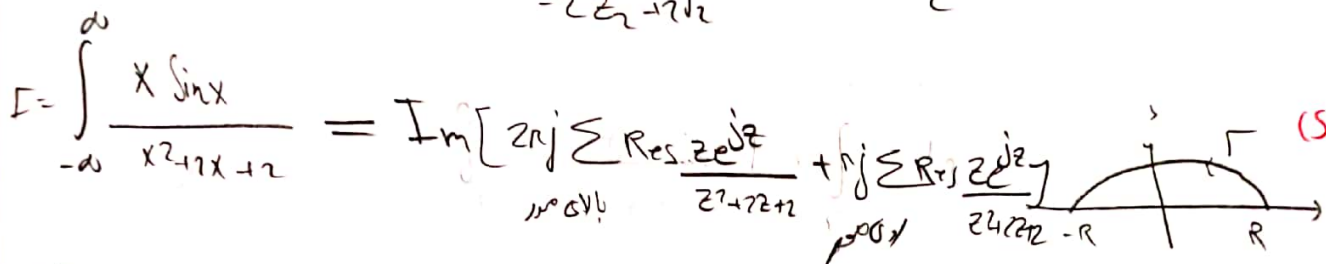 I = ∫_{-∞}^{∞} x sin x / (x² + 2x + 2) = Im[2πj Σ Res ze^{jz} / (z² + 2z + 2) + πj Σ Res ze^{jz} / (z² + 2z + 2)]
بالای محور
روی محور
Γ
-R R
(5